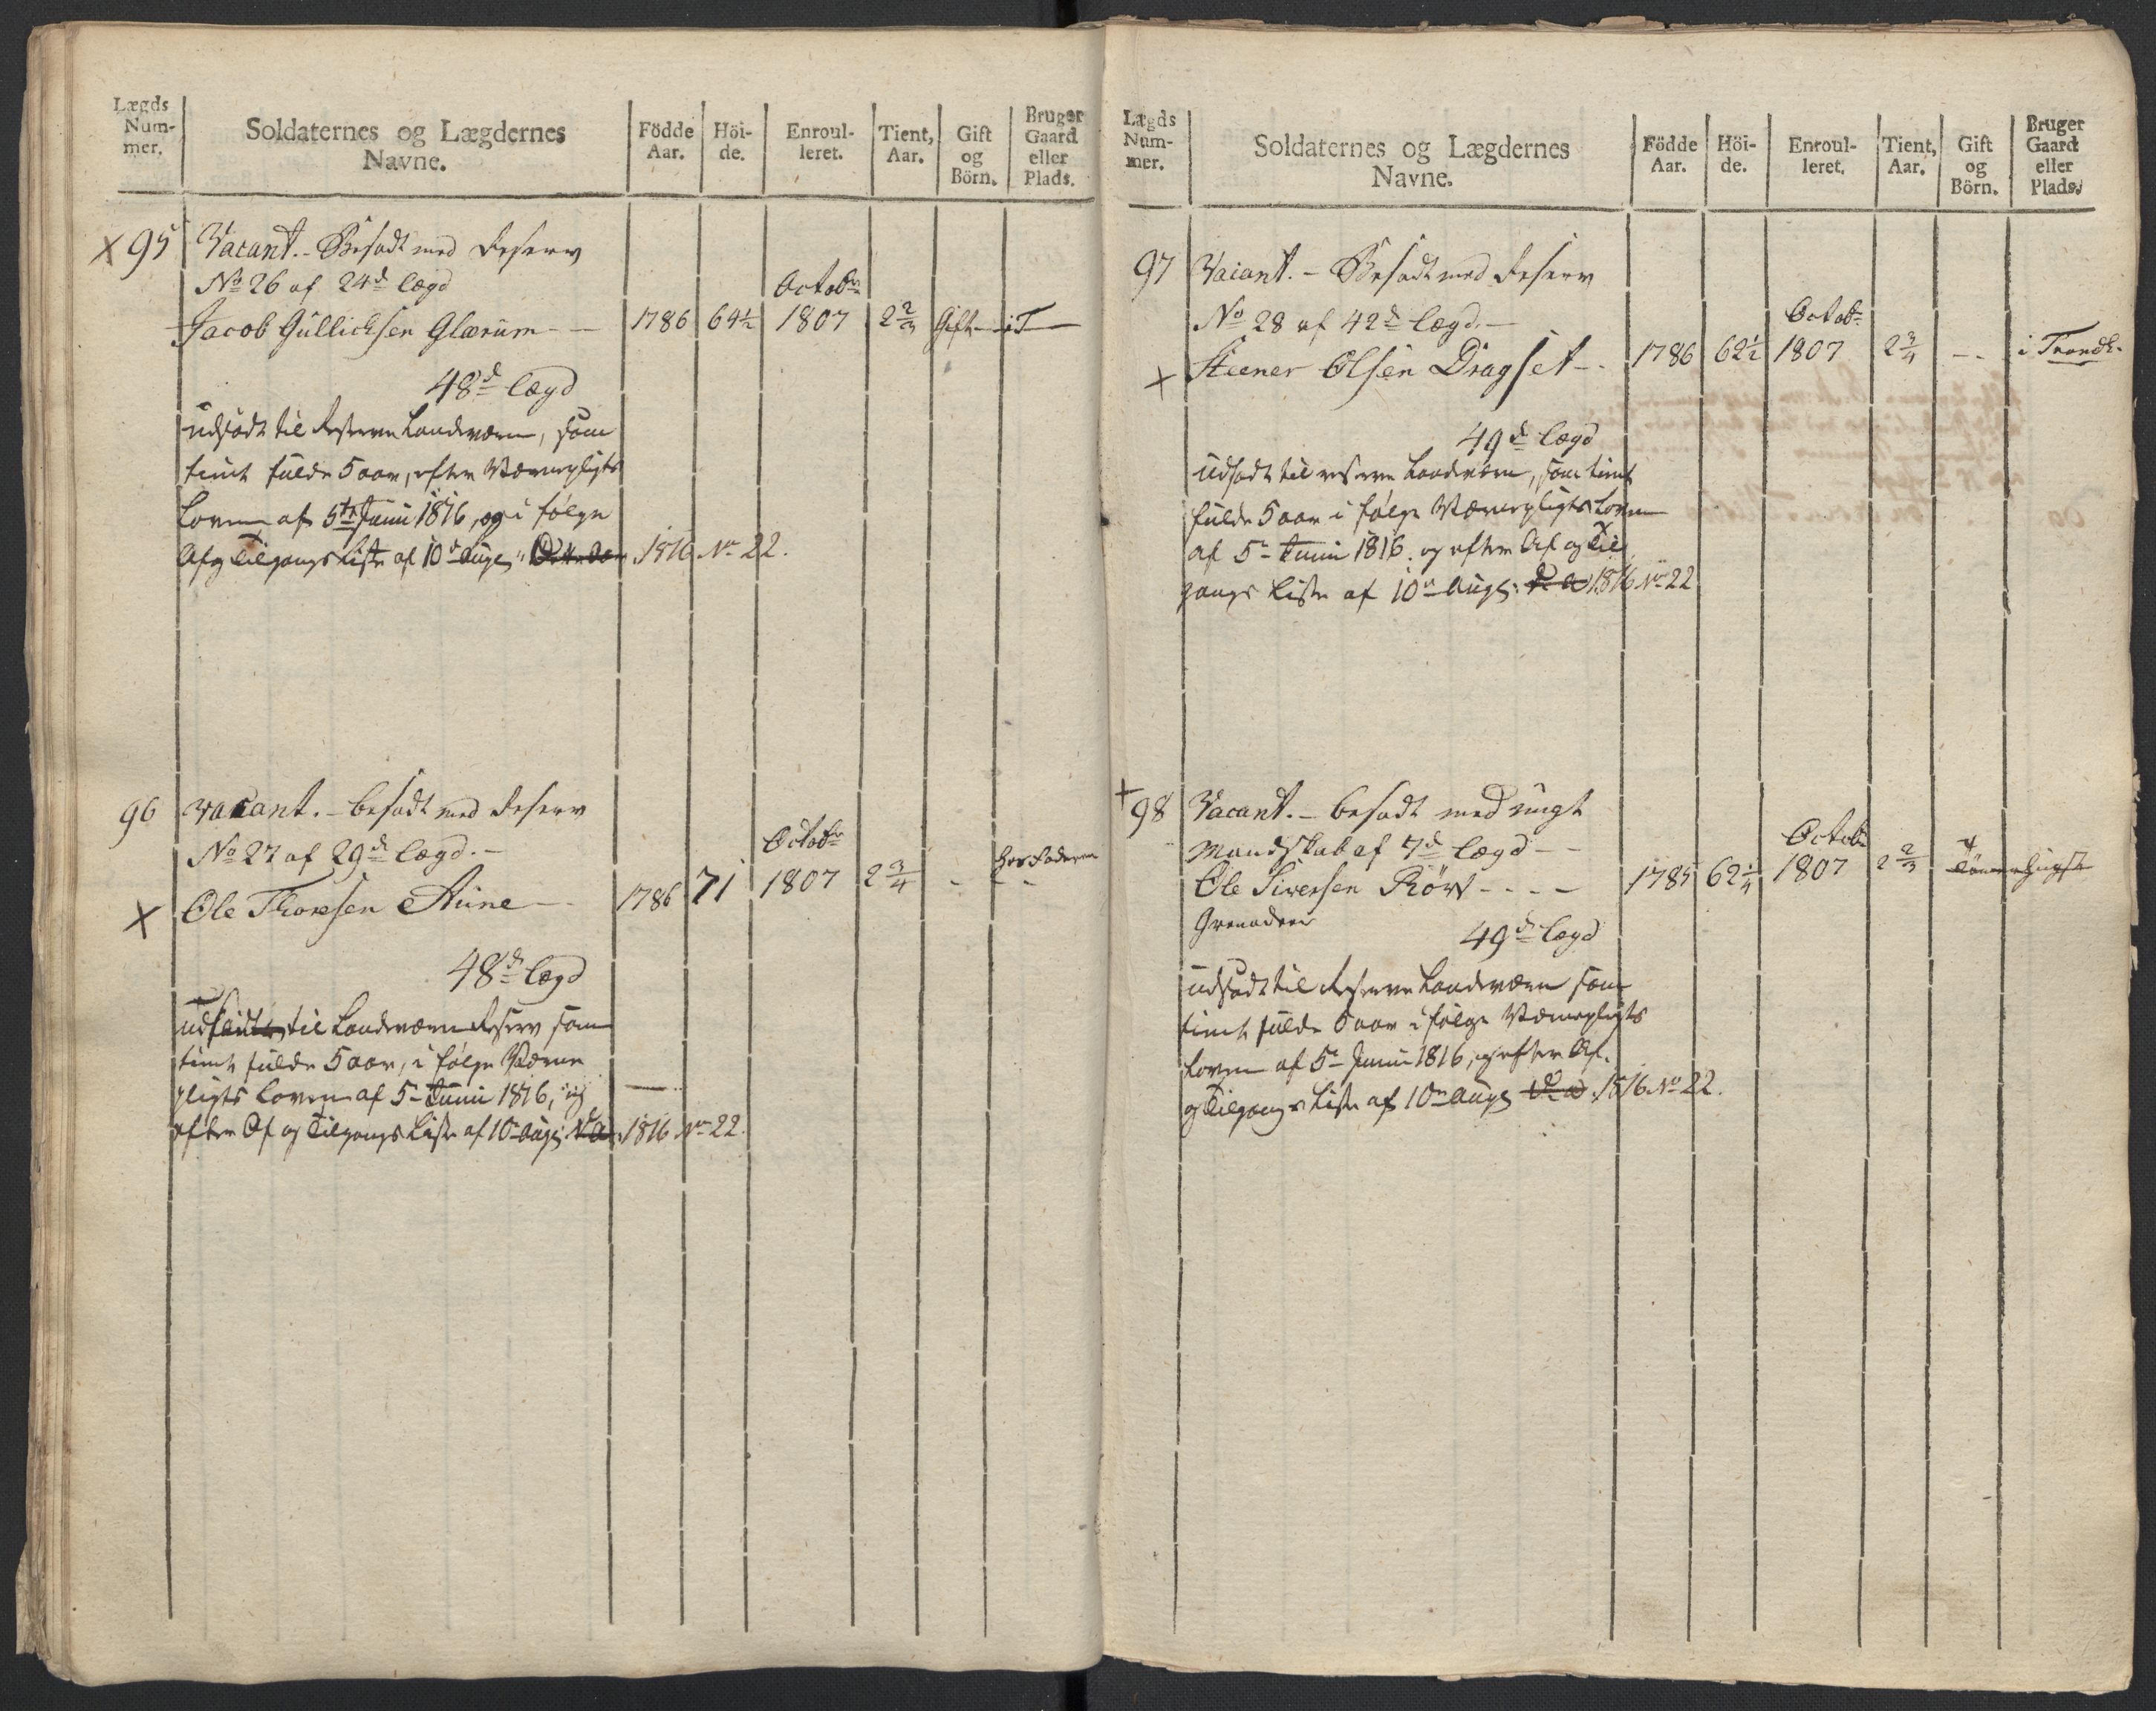 Lægds Num- mer.
Soldaternes og Lægdernes Navne.
Födde Aar.
Höi- de.
Enroul- leret.
Tient, Aar.
Gift og Börn.
Bruger Gaard eller Plads.
x 95 Vacant. - Besadt med Reserv
No 26 af 24d lægd
Octobr
Jacob Gullichsen Glærum - - 1786 64½ 1807 2⅔ Gift - i T
48d Lægd
udsadt til Reserve Landværn, som
tient fulde 5 aar, efter Værnepligts
Loven af 5te Junii 1816, og i følge
Af og Tilgangs Liste af 10d Aug. 1816 No 22.
96 Vacant. - besadt med Reserv
No 27 af 29d Lægd. -
Octobr
x Ole Thoresen Aune - 1786 71 1807 2¾ - hos Faderen
48d Lægd
til Landværn Reserv som
tient fulde 5 aar, i følge Værne
pligts Loven af 5 Junii 1816, og
efter Af og Tilgangs Liste af 10 Aug. 1816 No 22.
Lægds Num- mer.
Soldaternes og Lægdernes Navne.
Födde Aar.
Höi- de.
Enroul- leret.
Tient, Aar.
Gift og Börn.
Bruger Gaard eller Plads.
97 Vacant. - Besadt med Reserv
No 28 af 42d Lægd. -
Octob
x Steener Olsen Dragset - 1786 62½ 1807 2¾ - - i Trondh.
49d Lægd
udsadt til reserve Landværn, som tient
fulde 5 aar i følge Værnepligts Loven
af 5 Junii 1816. og efter Af og Til
gangs Liste af 10 Aug. 1816 No 22
+ 98 Vacant. - besadt med ungt
Mandskab af 7d Lægd - -
Octob
Ole Siversen Rört - - - - 1785 62¼ 1807 2⅔
Grenadeer
49d Lægd
udsadt til Reserve Landværn som
tient fulde 5 aar i følge Værnepligts
Loven af 5 Junii 1816, og efter Af.
og Tilgangs Liste af 10 Aug. 1816 No 22.